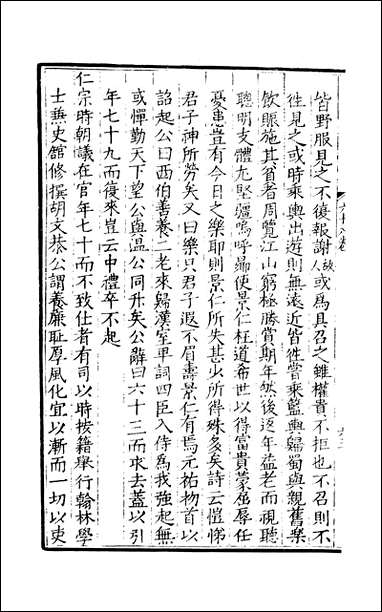 皆野服見之不復報謝故人或為具召之雖權貴不拒也不召則不
徃見之或時乘輿出遊則無遠近皆徃嘗乘籃輿歸蜀與親舊樂
飲賑施其貧者周覽江山窮極勝賞期年然後返年益老而視聽
聰明支體尤堅彊嗚呼曏使景仁枉道希世以得富貴蒙屈辱任
憂患豈有今日之樂耶則景仁所失甚少所得殊多矣詩云愷悌
君子神所勞矣又曰樂只君子遐不眉壽景仁有焉元祐物首以
詔起公曰西伯善養二老來歸漢室卑詞四臣入侍為我強起無
或憚勤天下望公與溫公同升矣公辭曰六十三而求去蓋以引
年七十九而復來豈云中禮卒不起
仁宗時朝議在官年七十而不致仕者有司以時按籍舉行翰林學
士兼史館修撰胡文恭公謂養廉恥厚風化宜以漸而一切以吏